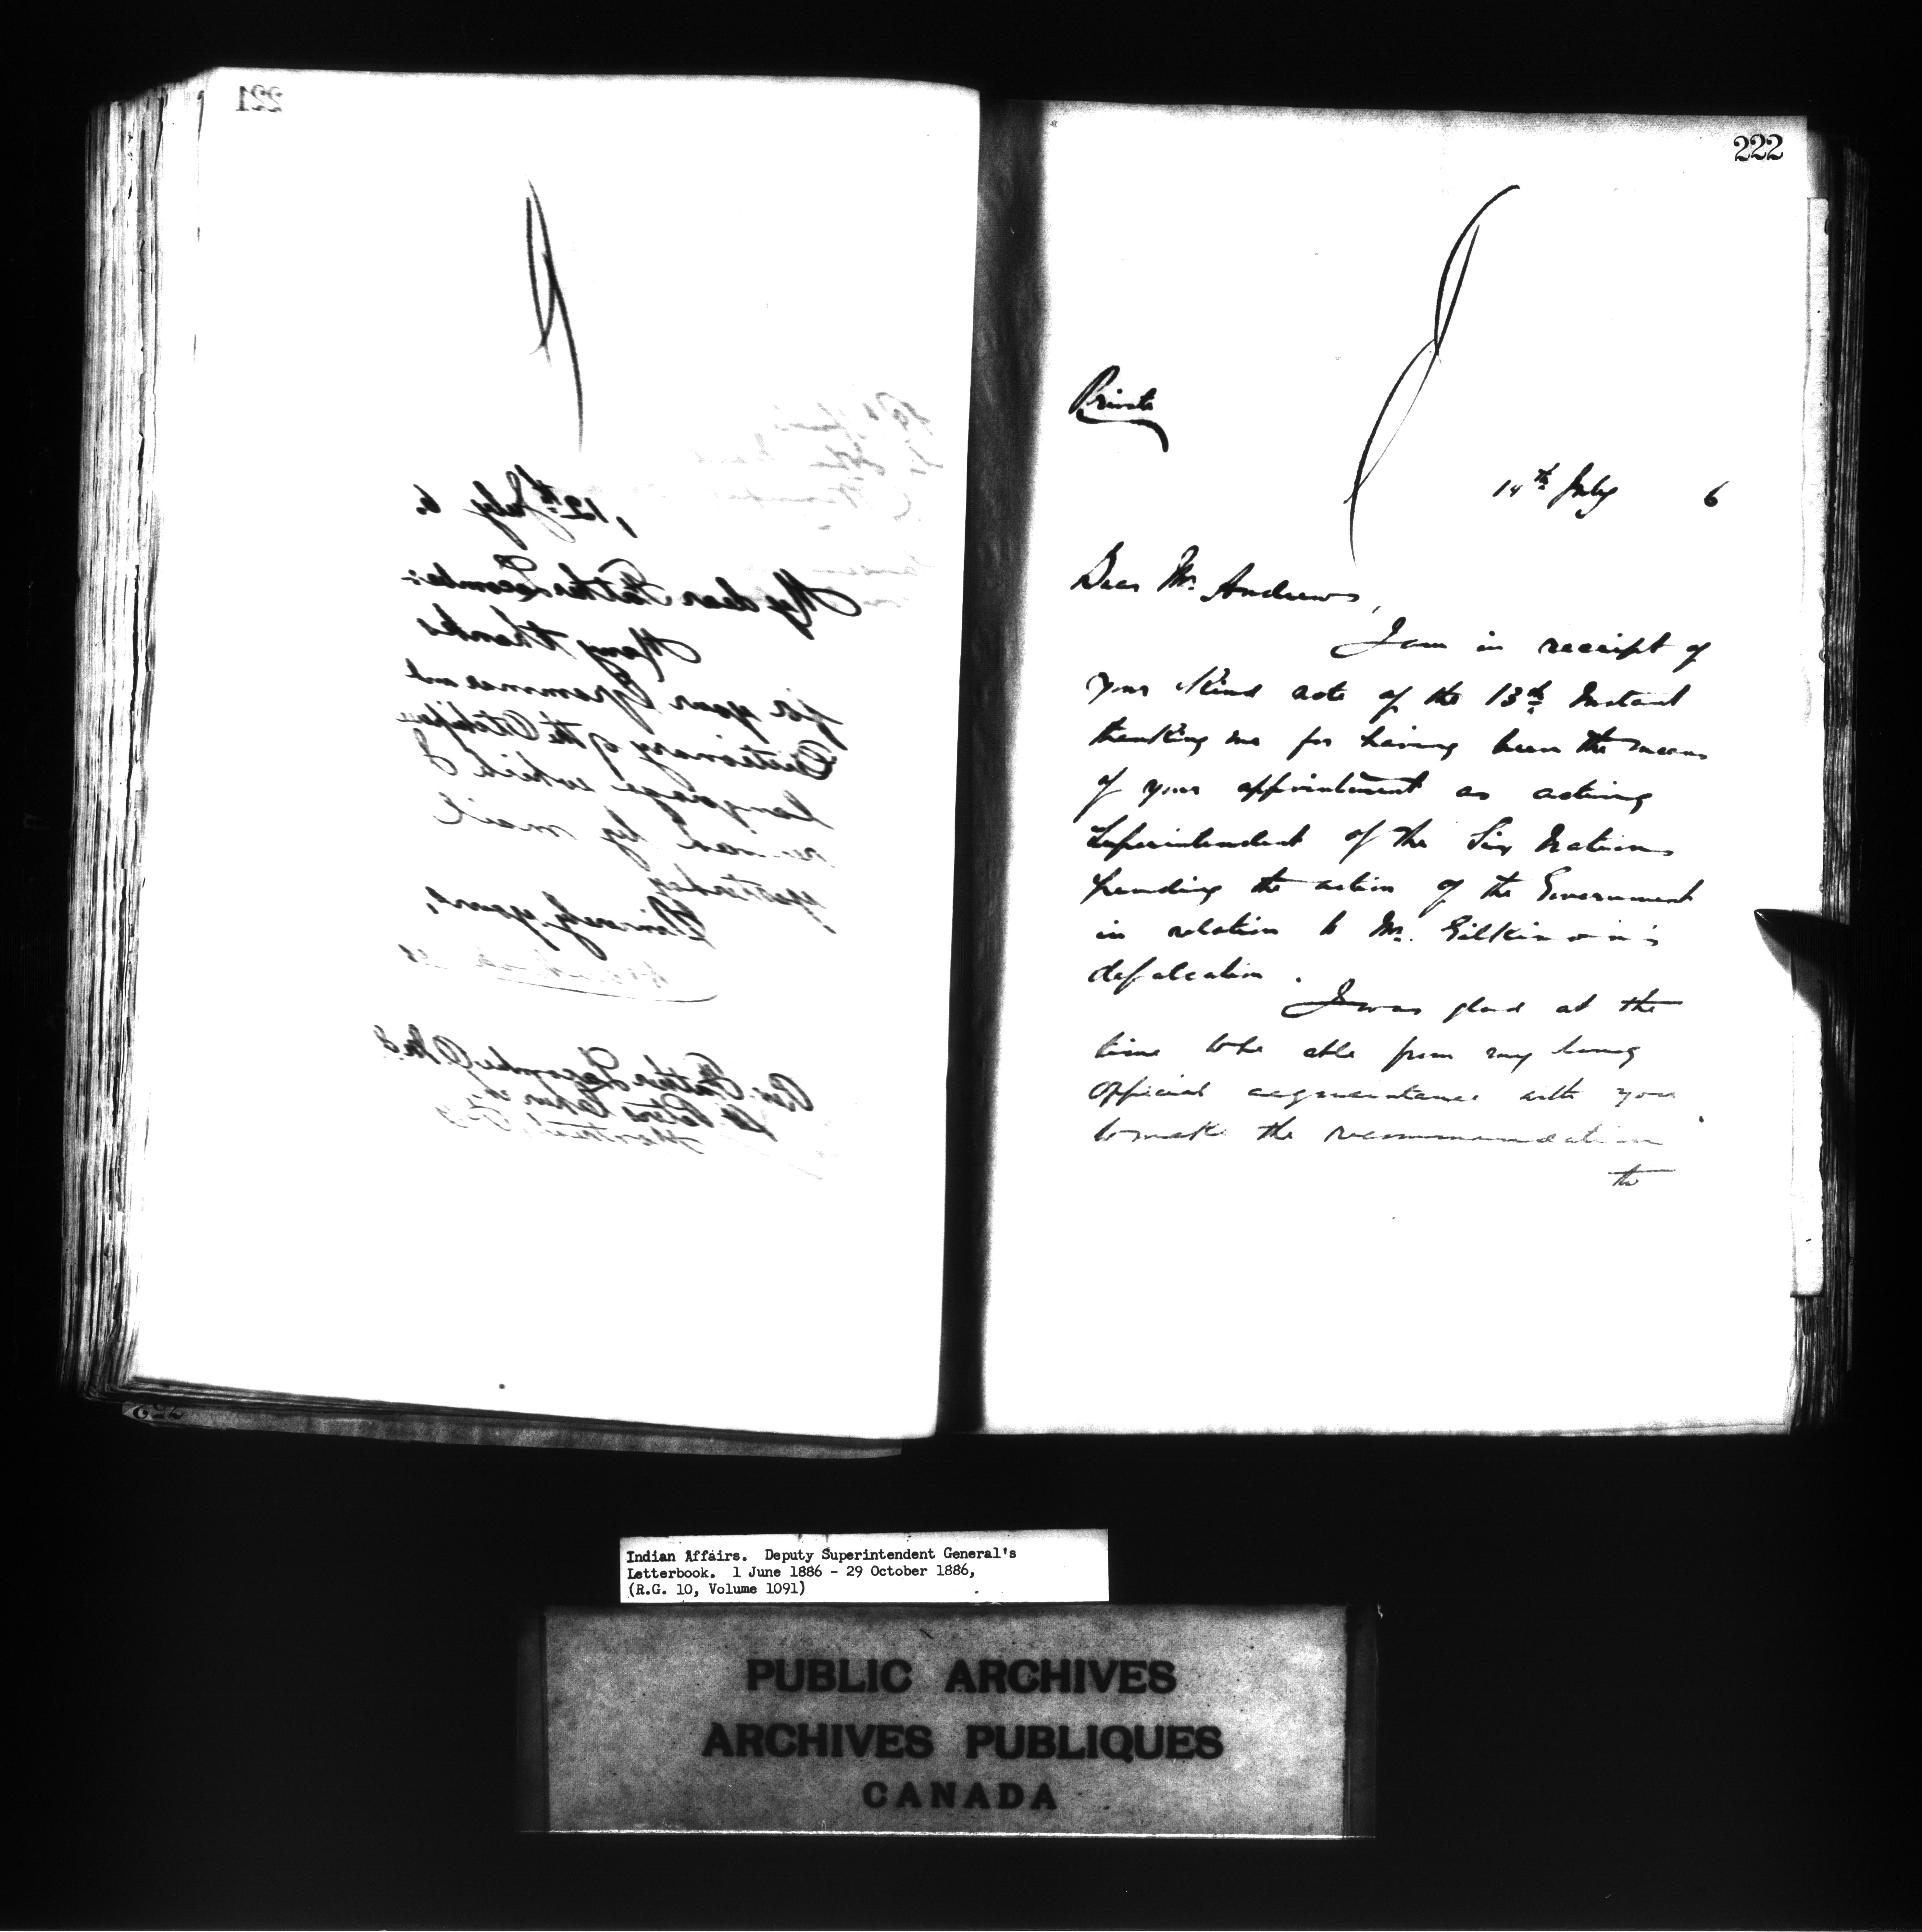 221
12th July 6.
My dear Father Lacombe:
Many thanks
for your Grammar and
Dictionary of the Otchipwe
language which I
received by mail
yesterday
Sincerely yours,
Rev. Father Lacombe O.M.I.
St. Peters
Montreal
222
Private
14th July 6
Dear Mr. Andrews,
I am in receipt of
your kind note of the 13th Instant
thanking me for having been the means
of your appointment as acting
Superintendent of the Six Nations
pending the action of the Government
in relation to Mr. Gilkison's
defalcation.
I was glad at the
time to be able from my long
Official acquaintance with you
to make the recommendation
Indian Affairs. Deputy Superintendent General's
Letterbook. 1 June 1886 - 29 October 1886,
(R.G. 10, Volume 1091)
PUBLIC ARCHIVES
ARCHIVES PUBLIQUES
CANADA